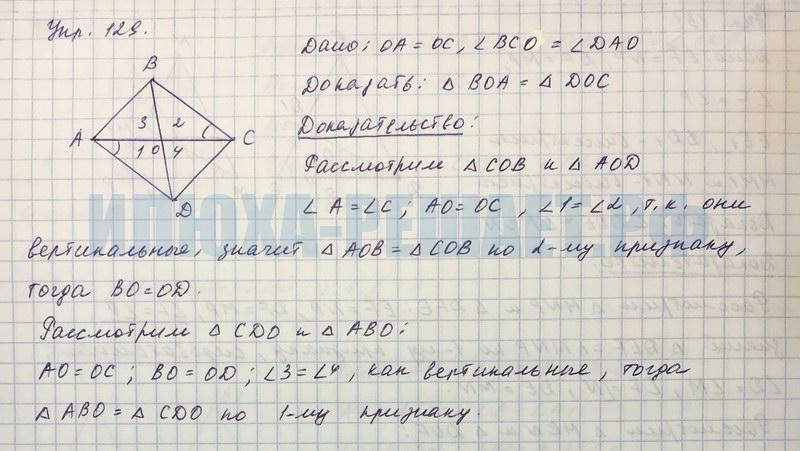 Упр. 129.
Дано: OA = OC, ∠BCO = ∠DAO
Доказать: △ BOA = △ DOC
Доказательство:
Рассмотрим △ COB и △ AOD
∠ A = ∠C; AO = OC, ∠1 = ∠2, т.к. они
вертикальные, значит △ AOB = △ COB по 2-му признаку,
тогда BO = OD.
Рассмотрим △ CDO и △ ABO:
AO = OC; BO = OD; ∠3 = ∠4, как вертикальные, тогда
△ ABO = △ CDO по 1-му признаку.
B
3 2
A C
1 O 4
D